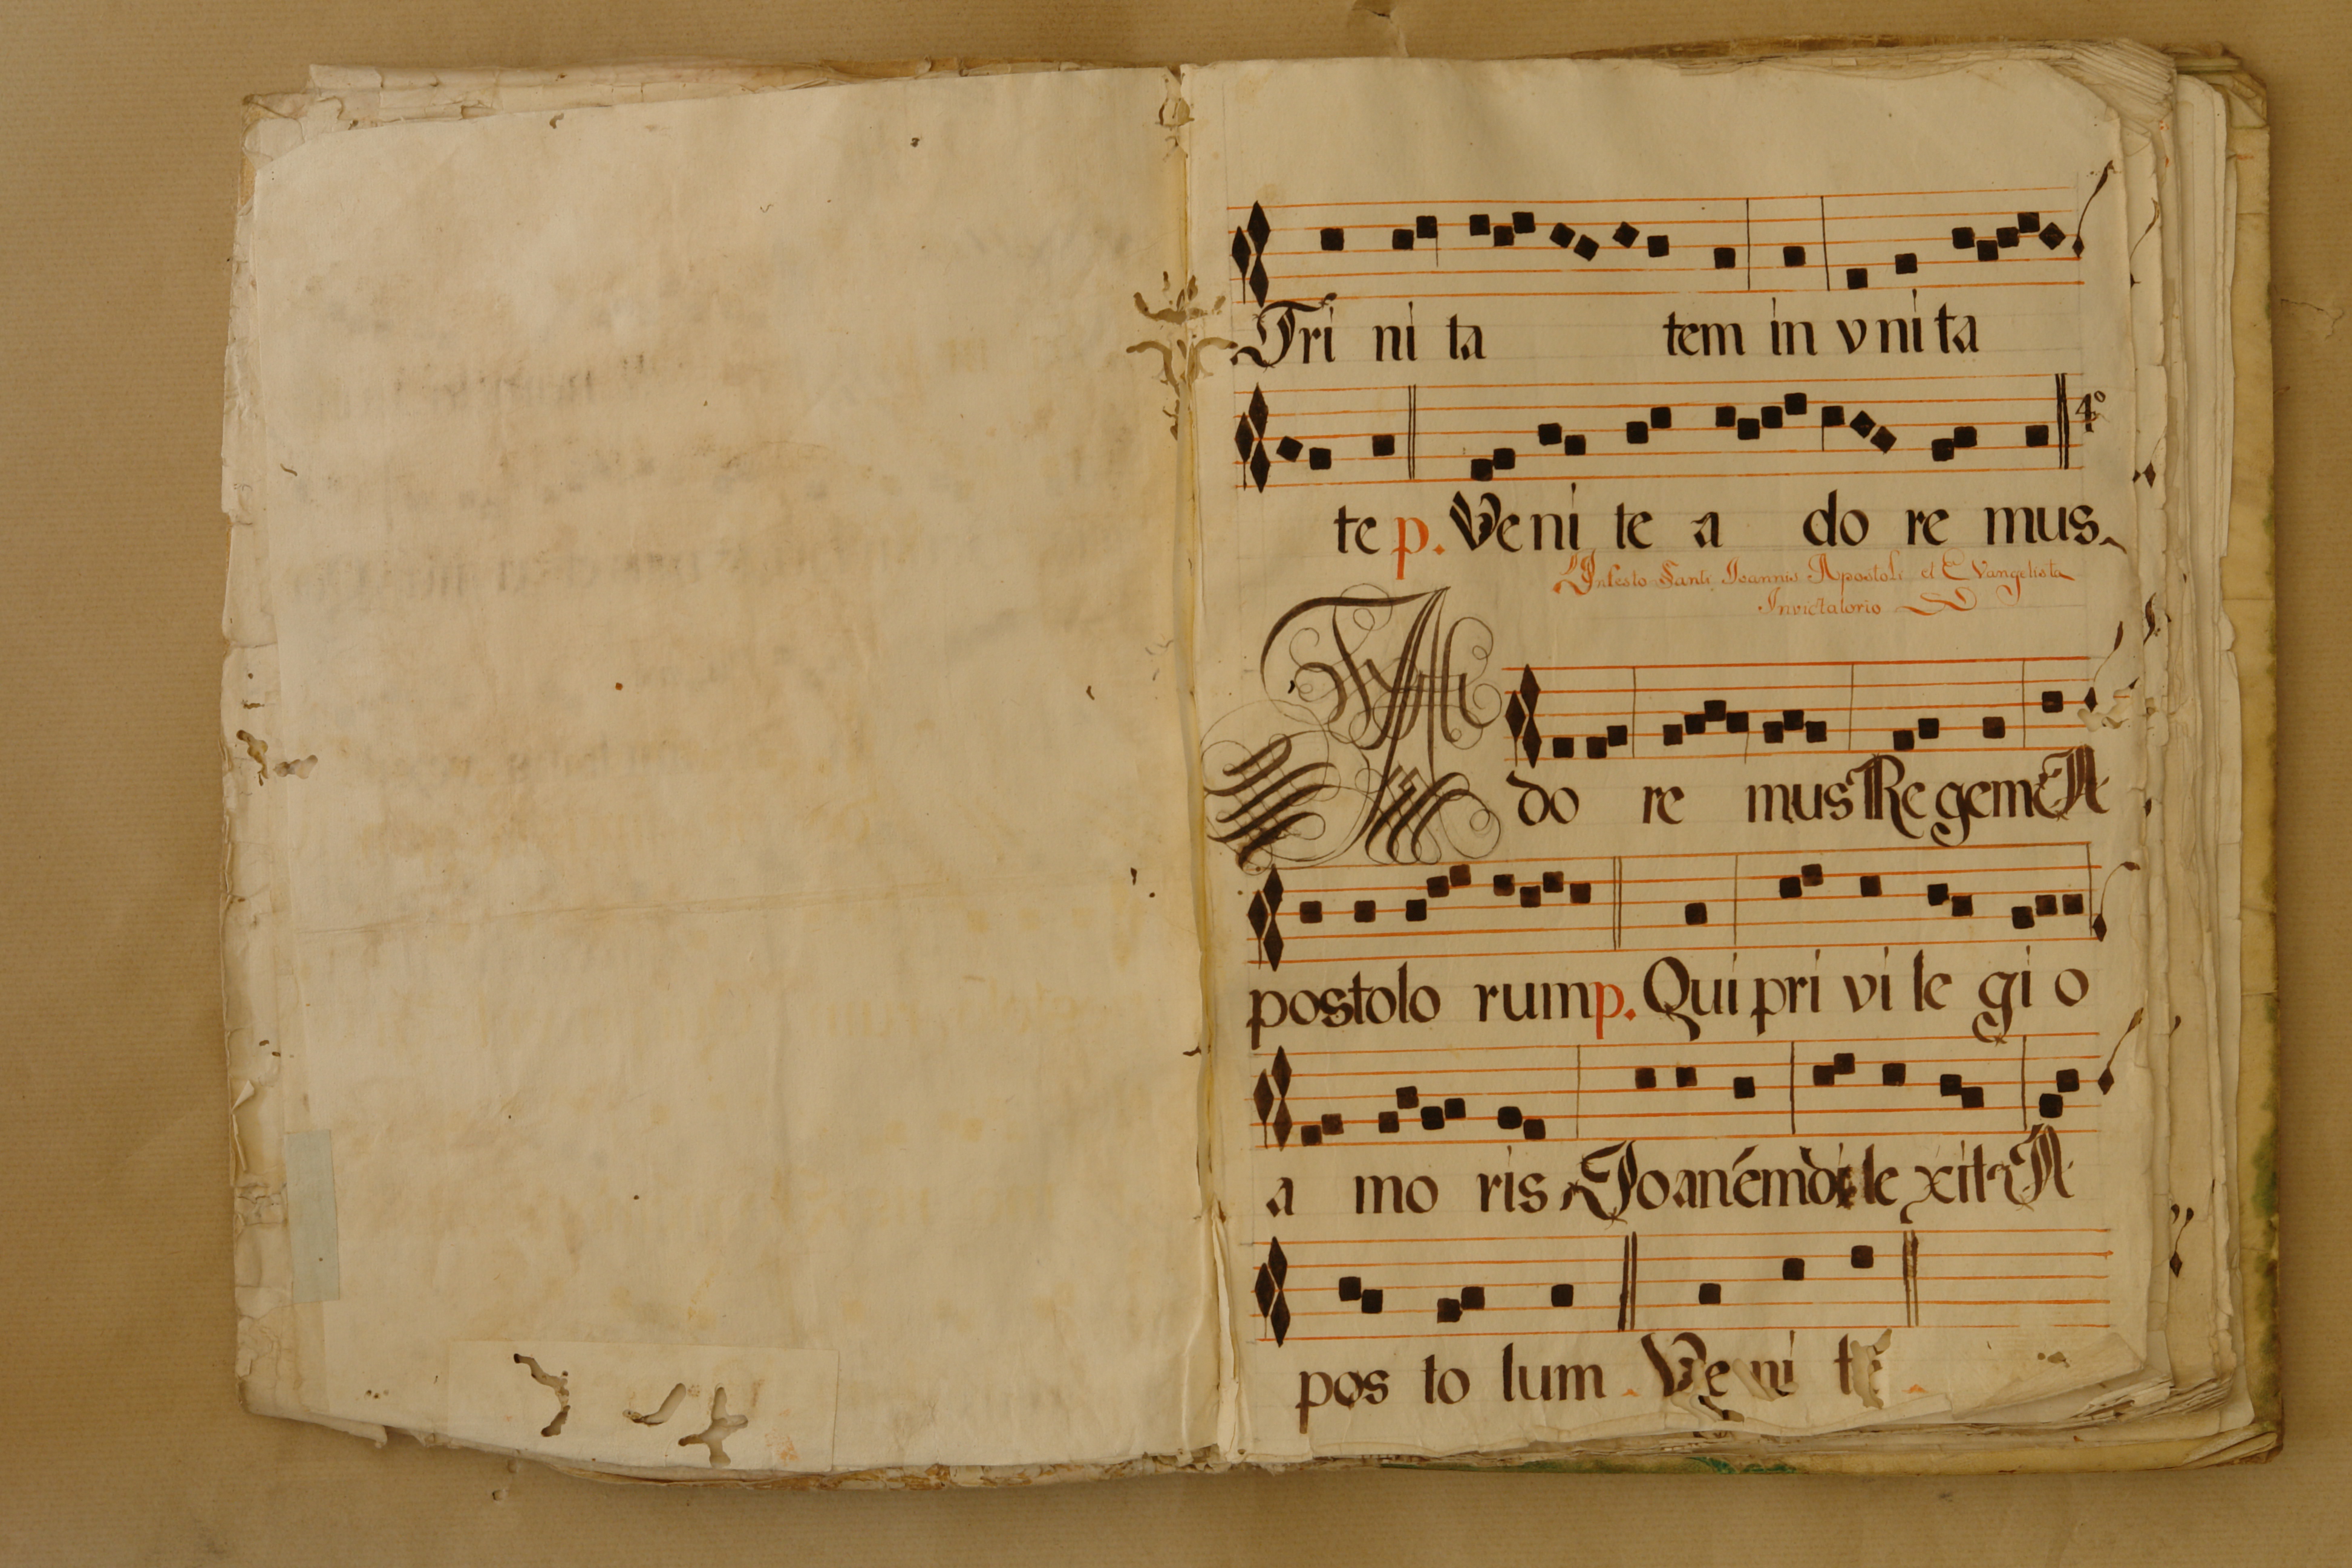 Tri ni ta tem in vni ta
4º
te p. Ve ni te a do re mus.
In festo Santi Ioannis Apostoli et Evangelista
Invictatorio
A do re mus Re gem A
postolo rum p. Qui pri vi le gi o
a mo ris Ioaném di le xit A
pos to lum. Ve ni te